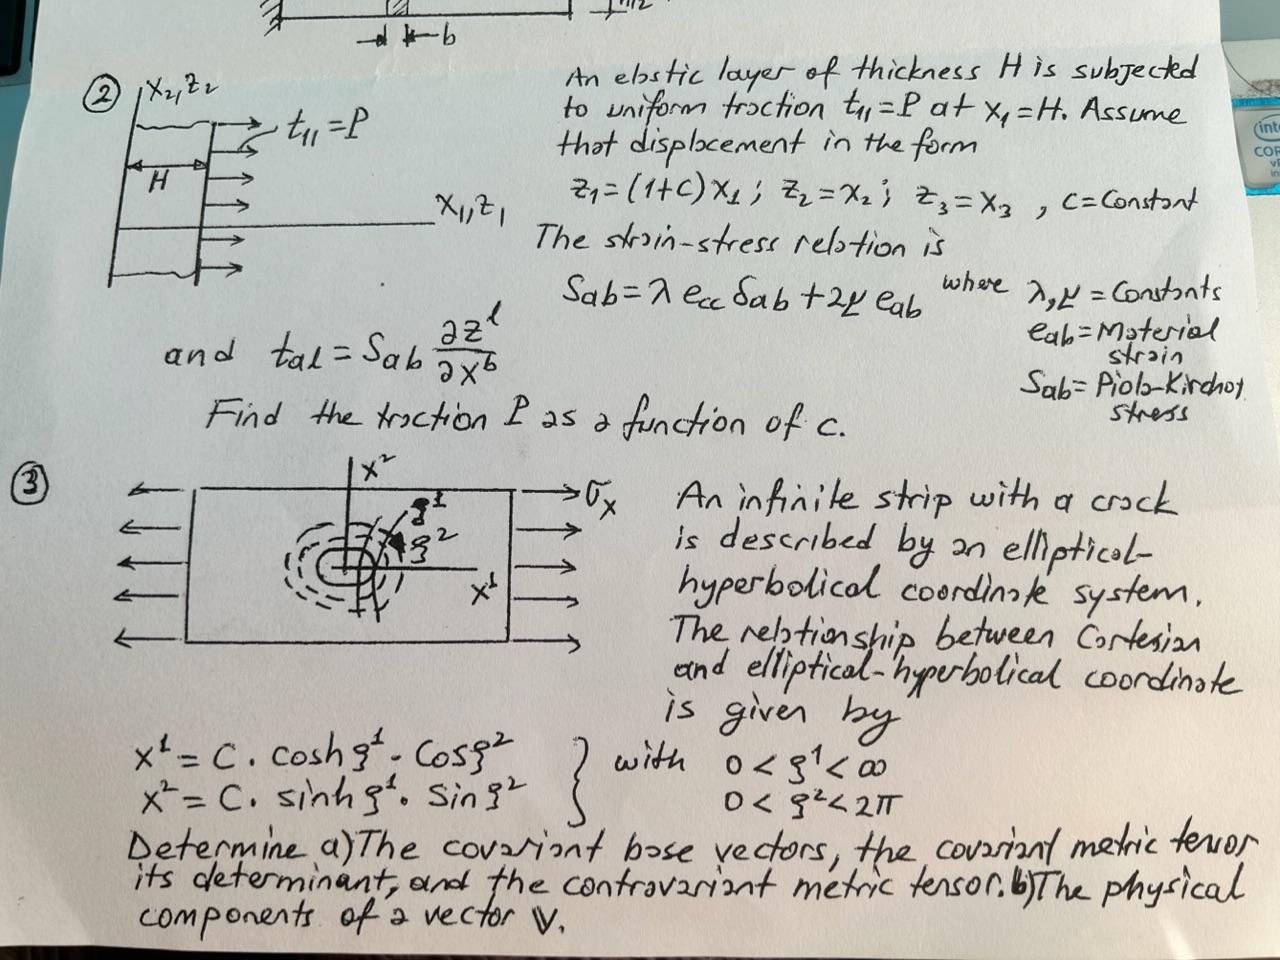 b
② x₂,z₂
t₁₁ = P
H
x₁,z₁
An elastic layer of thickness H is subjected
to uniform traction t₁₁ = P at x₁ = H. Assume
that displacement in the form
z₁ = (1+c)x₁ ; z₂ = x₂ ; z₃ = x₃ , c = Constant
The strain-stress relation is
Sab = λ ecc δab + 2μ eab where λ,μ = Constants
eab = Material
strain
Sab = Piola-Kirchof
stress
and tal = Sab ∂z^l/∂x^b
Find the traction P as a function of c.
③ x²
σx
ξ¹
ξ²
x¹
An infinite strip with a crack
is described by an elliptical-
hyperbolical coordinate system.
The relationship between Cartesian
and elliptical-hyperbolical coordinate
is given by
x¹ = C . cosh ξ¹ . Cos ξ² } with 0 < ξ¹ < ∞
x² = C . sinh ξ¹ . Sin ξ² 0 < ξ² < 2π
Determine a) The covariant base vectors, the covariant metric tensor
its determinant, and the contravariant metric tensor. b) The physical
components of a vector V.
inte
COR